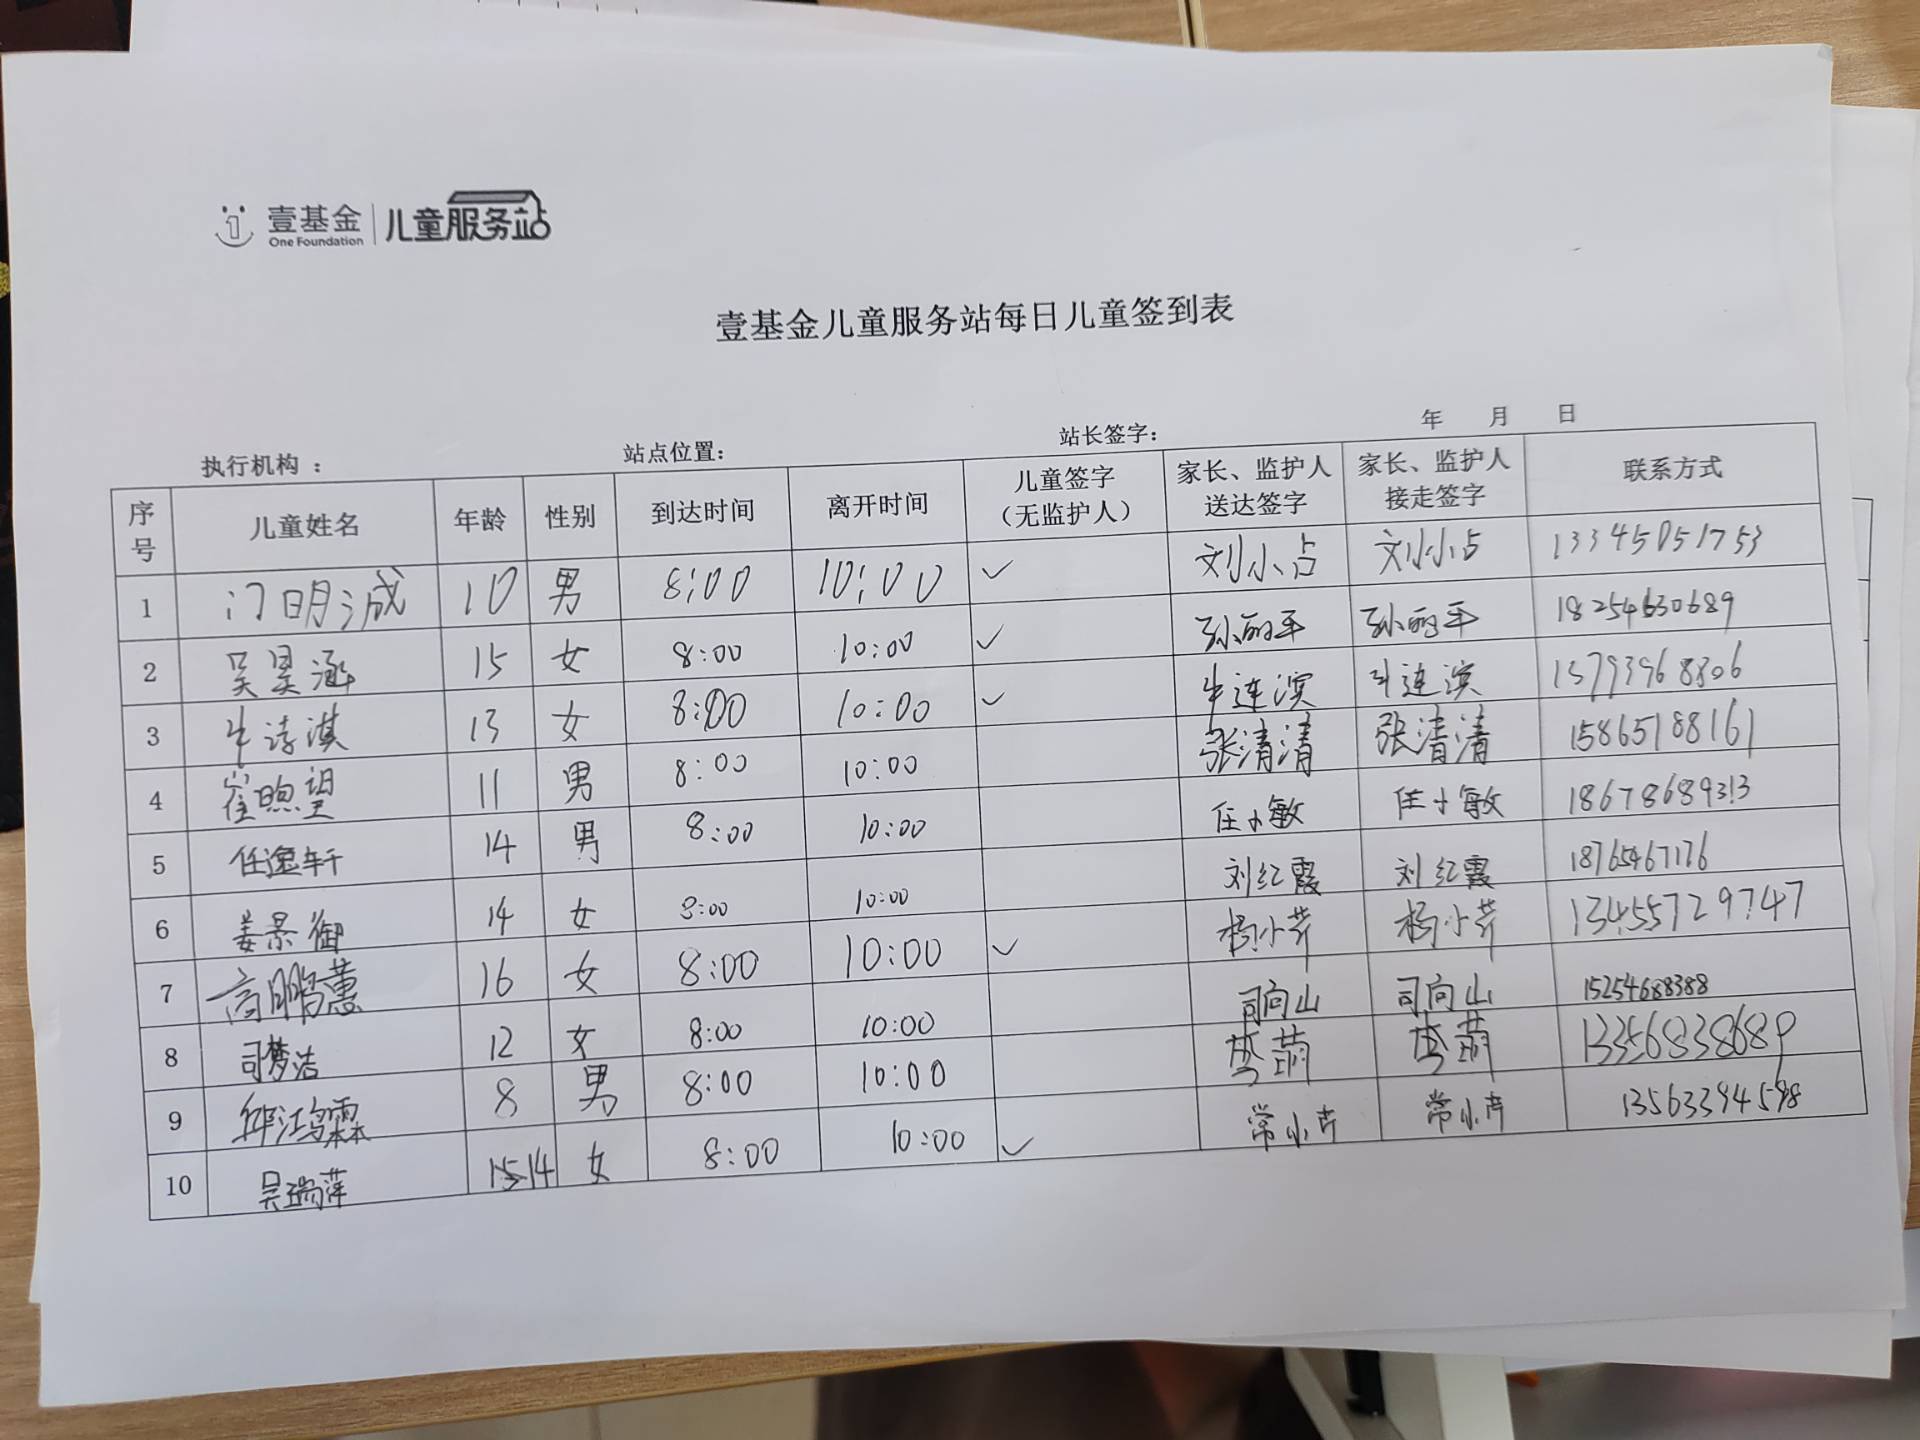 壹基金 儿童服务站
One Foundation
壹基金儿童服务站每日儿童签到表
执行机构 ： 站点位置： 站长签字： 年 月 日
序号 儿童姓名 年龄 性别 到达时间 离开时间 儿童签字（无监护人） 家长、监护人送达签字 家长、监护人接走签字 联系方式
1 门明诚 10 男 8:00 10:00 ✓ 刘小占 刘小占 13345051753
2 吴昊涵 15 女 8:00 10:00 ✓ 孙丽平 孙丽平 18254630689
3 牛诗淇 13 女 8:00 10:00 ✓ 牛连滨 牛连滨
4 崔煦望 11 男 8:00 10:00 张清清 张清清 15865188161
5 任逸轩 14 男 8:00 10:00 任小敏 任小敏 18678689313
6 姜景御 14 女 8:00 10:00 刘红霞 刘红霞 18765467176
7 高鹏蕙 16 女 8:00 10:00 ✓ 杨小芹 杨小芹 13455729747
8 司梦洁 12 女 8:00 10:00 司向山 司向山 15254688388
9 邱江鸿霖 8 男 8:00 10:00
10 吴瑞萍 14 女 8:00 10:00 ✓ 常小芹 常小芹 13563394598